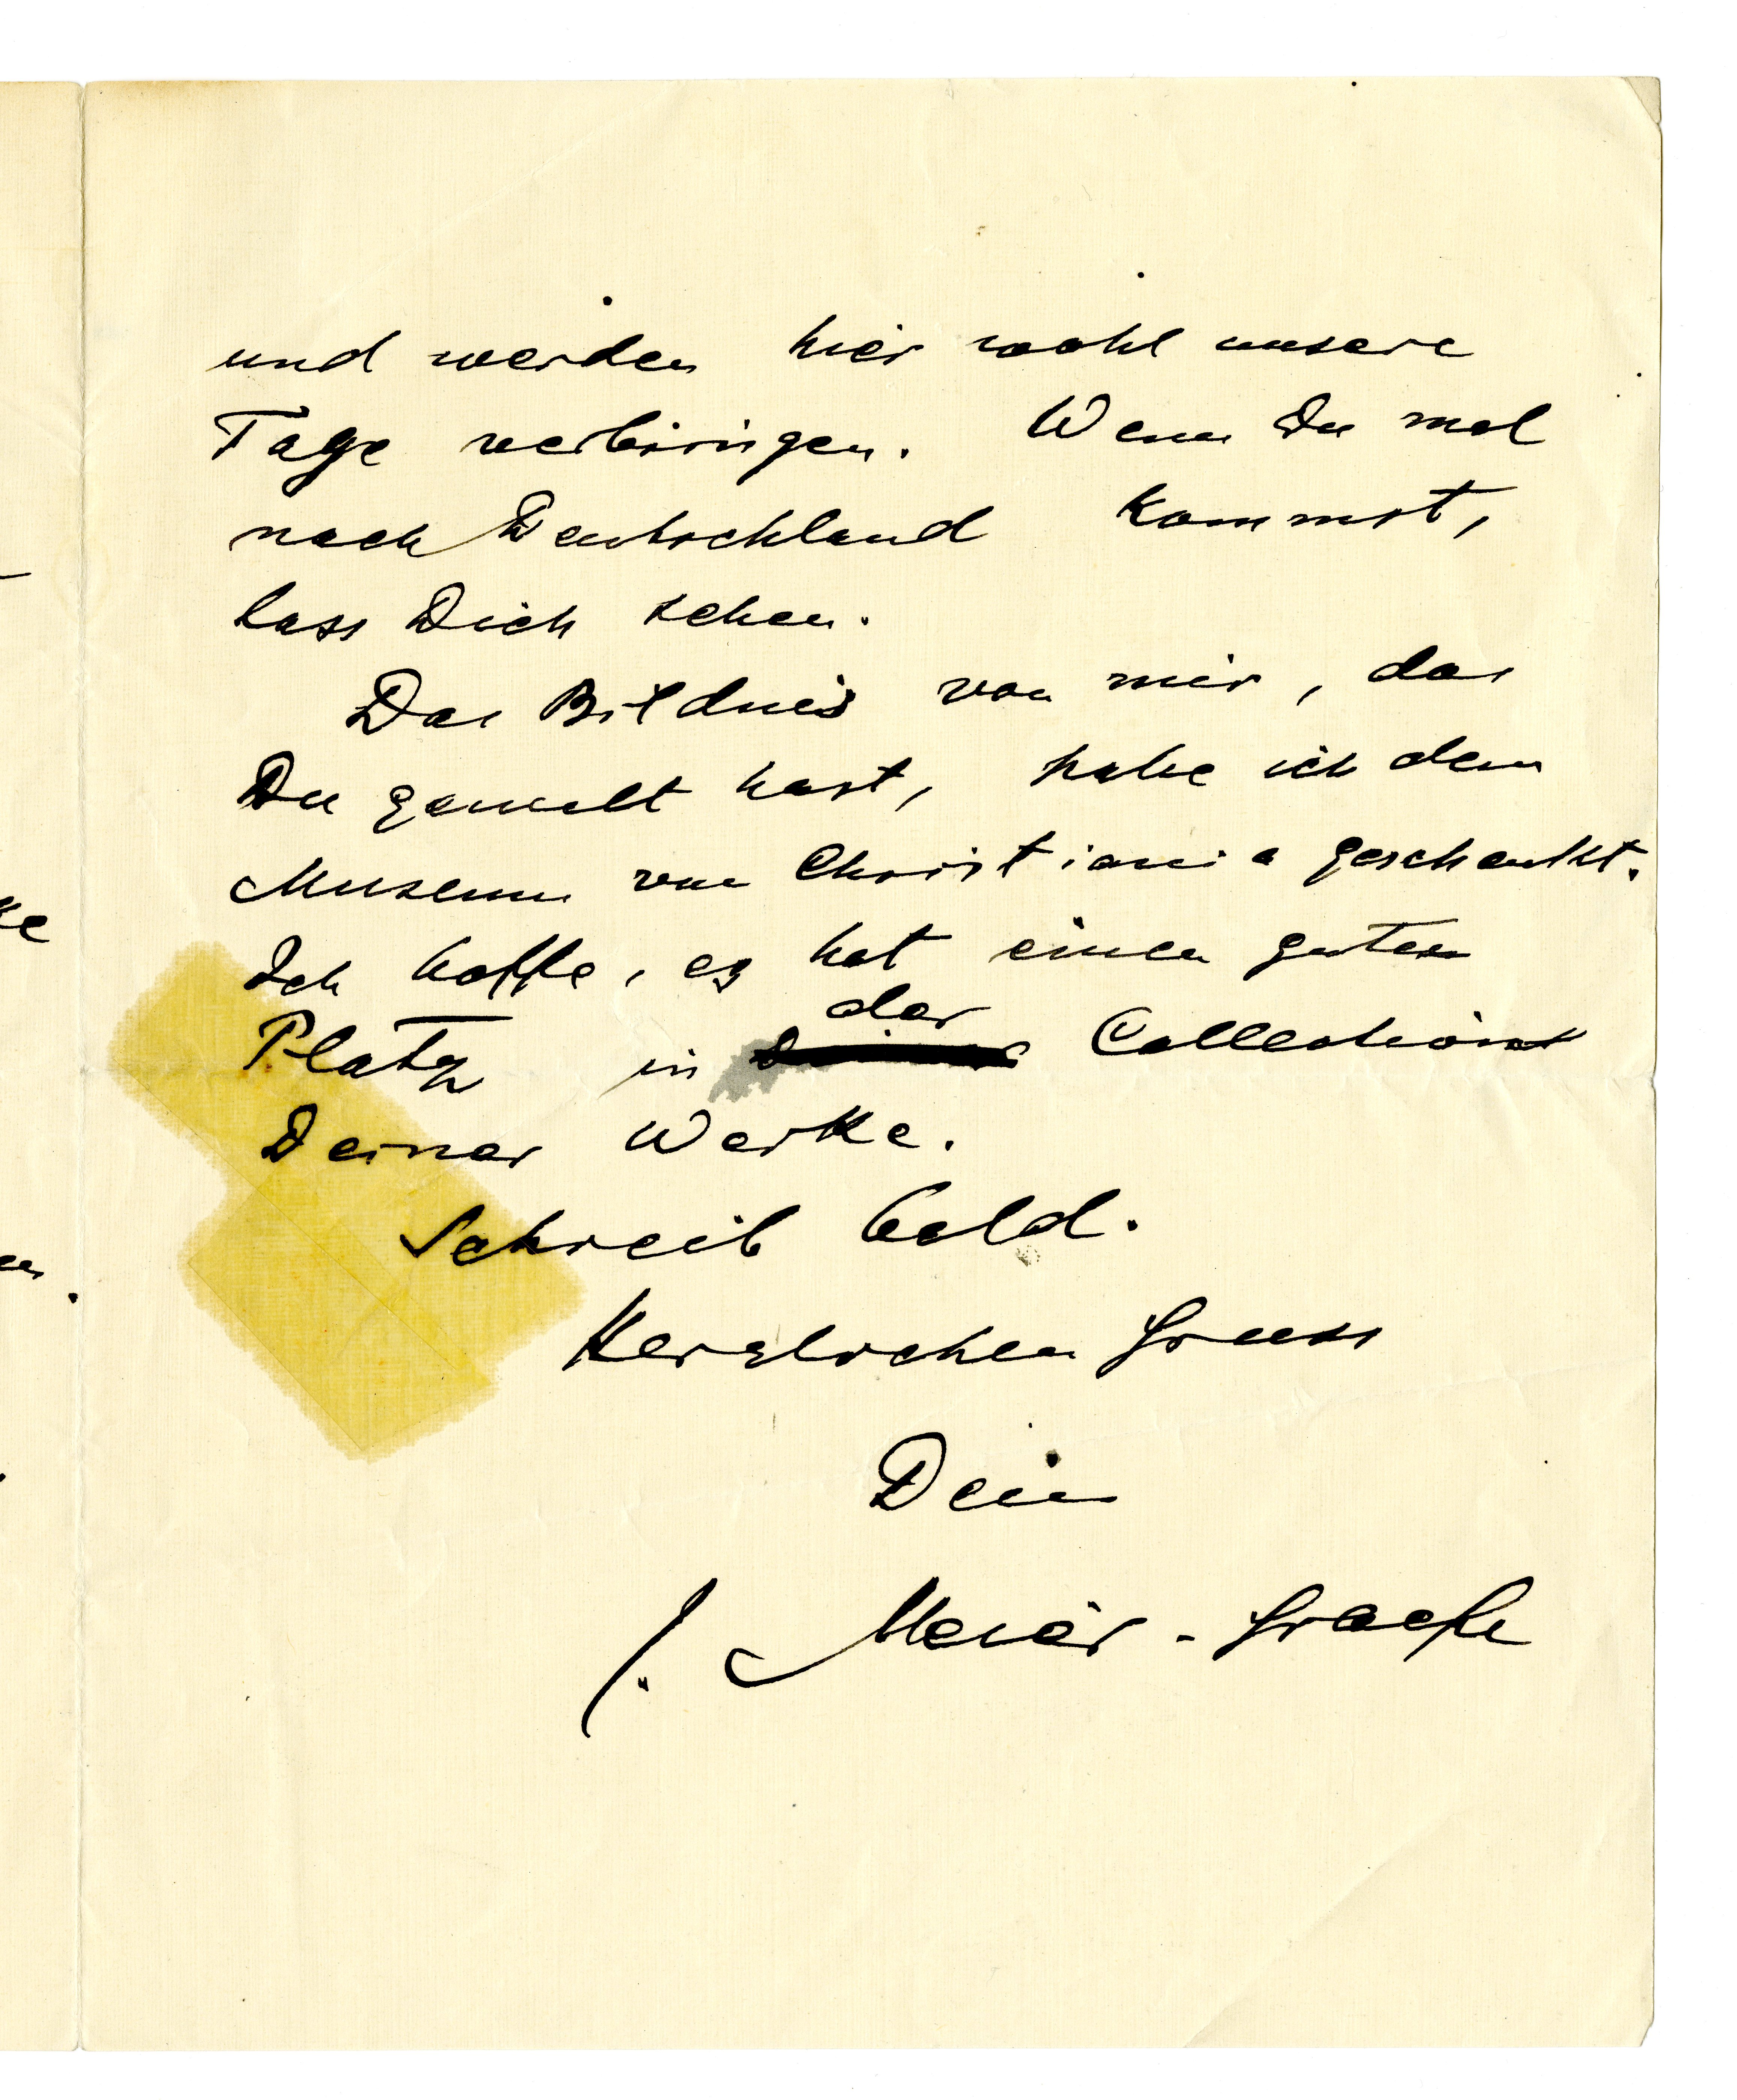 und werden hier wohl unsere
Tage verbringen. Wenn Du mal
nach Deutschland kommst,
lass Dich sehen.
Das Bildnis von mir, das
Du gemalt hast, habe ich dem
Museum von Christiania geschenkt.
Ich hoffe, es hat einen guten
der
Platz in Collection
Deiner Werke.
Schreib bald.
Herzlichen Gruss
Dein
J. Meier-Graefe